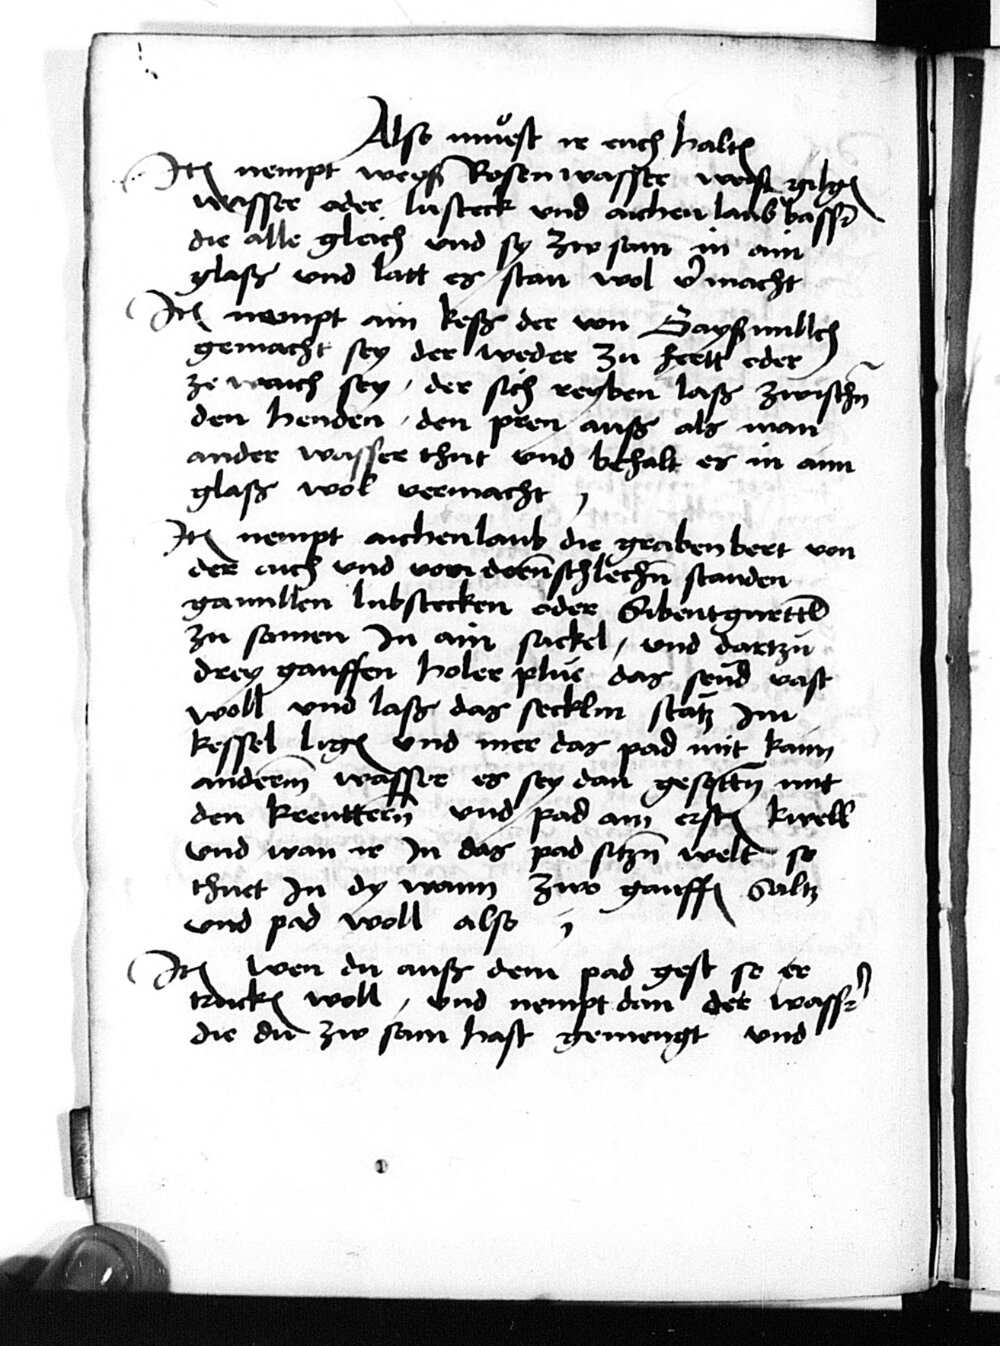 Also muͦest ir euch halten
Itē nempt weyß Rosen wasser weiß gilgē
wasser oder lusteck vnd aichen laub wasser
die alle gleich vnd sy zw sam in ain
glaß vnd latt es stan wol v̄macht
Itē nempt ain keß der von Gayßmillch
gemacht sey der weder zu hertt oder
ze waich sey / der sich reyben laß zwischn̄
den henden / den pren auß als man
ander wasser thut vnd behalt es in aim
glaß wol vermacht /
Itē nempt aichenlaub die graben bert von
der aich vnd von dornschlechn̄ standen
gamillen lubstecken oder
zu samen In ain sackel / vnd dartzu
drey gauffen holer plue das send vast
woll vnd laß das secklin statz Im
kessel ligē vnd mer das pad mit kaim
anderm wasser es sey dan gesottn̄ mit
den kreuttern̄ vnd pad am erstē
vnd wan ir In das pad sitzn̄ welt so
thuet In dy wann zwo gauffē Saltz
vnd pad woll also /
Itē wen du auß dem pad gest so er
truckē woll / vnd nempt dan der wasser
die du zw sam hast gemengt vnd